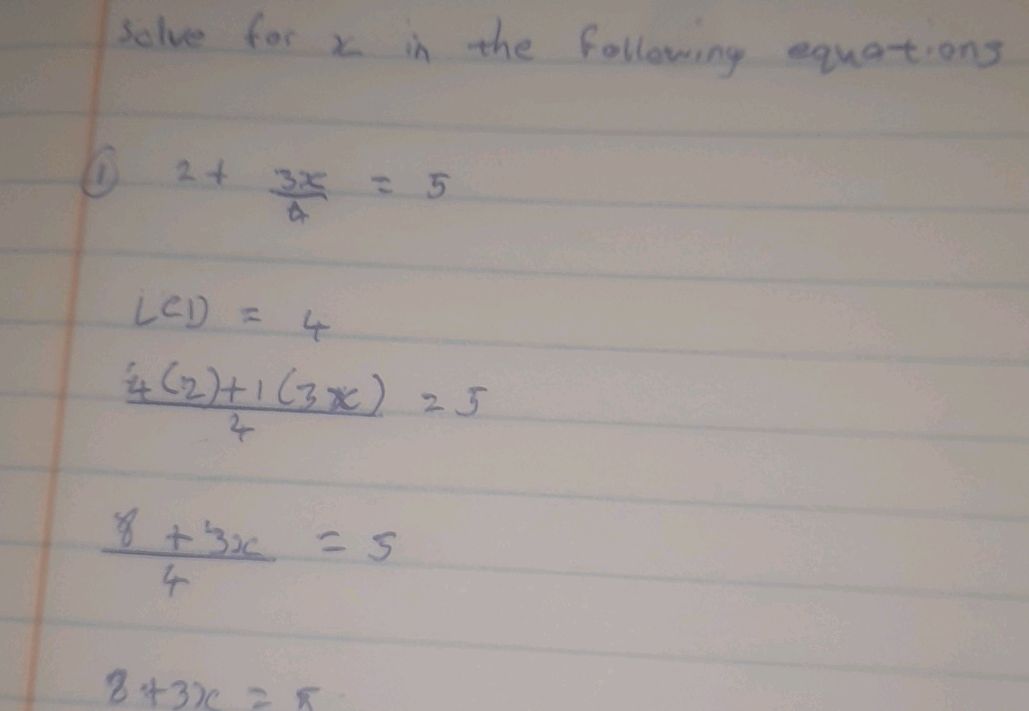 Solve for x in the following equations
① 2 + 3x/4 = 5
LCD = 4
4(2)+1(3x)/4 = 5
8 + 3x/4 = 5
8+3x = 5